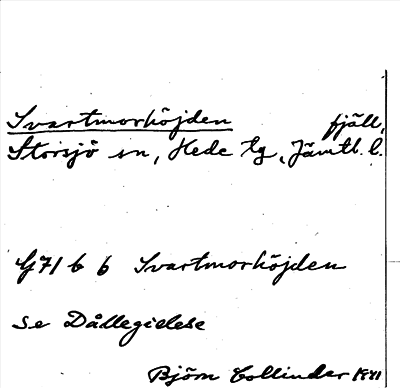 Svartmorhöjden fjäll,
Storsjö sn, Hede tg, Jämtl. l.
G71 b b Svartmorhöjden
se Dållegielese
Björn Collinder 1941